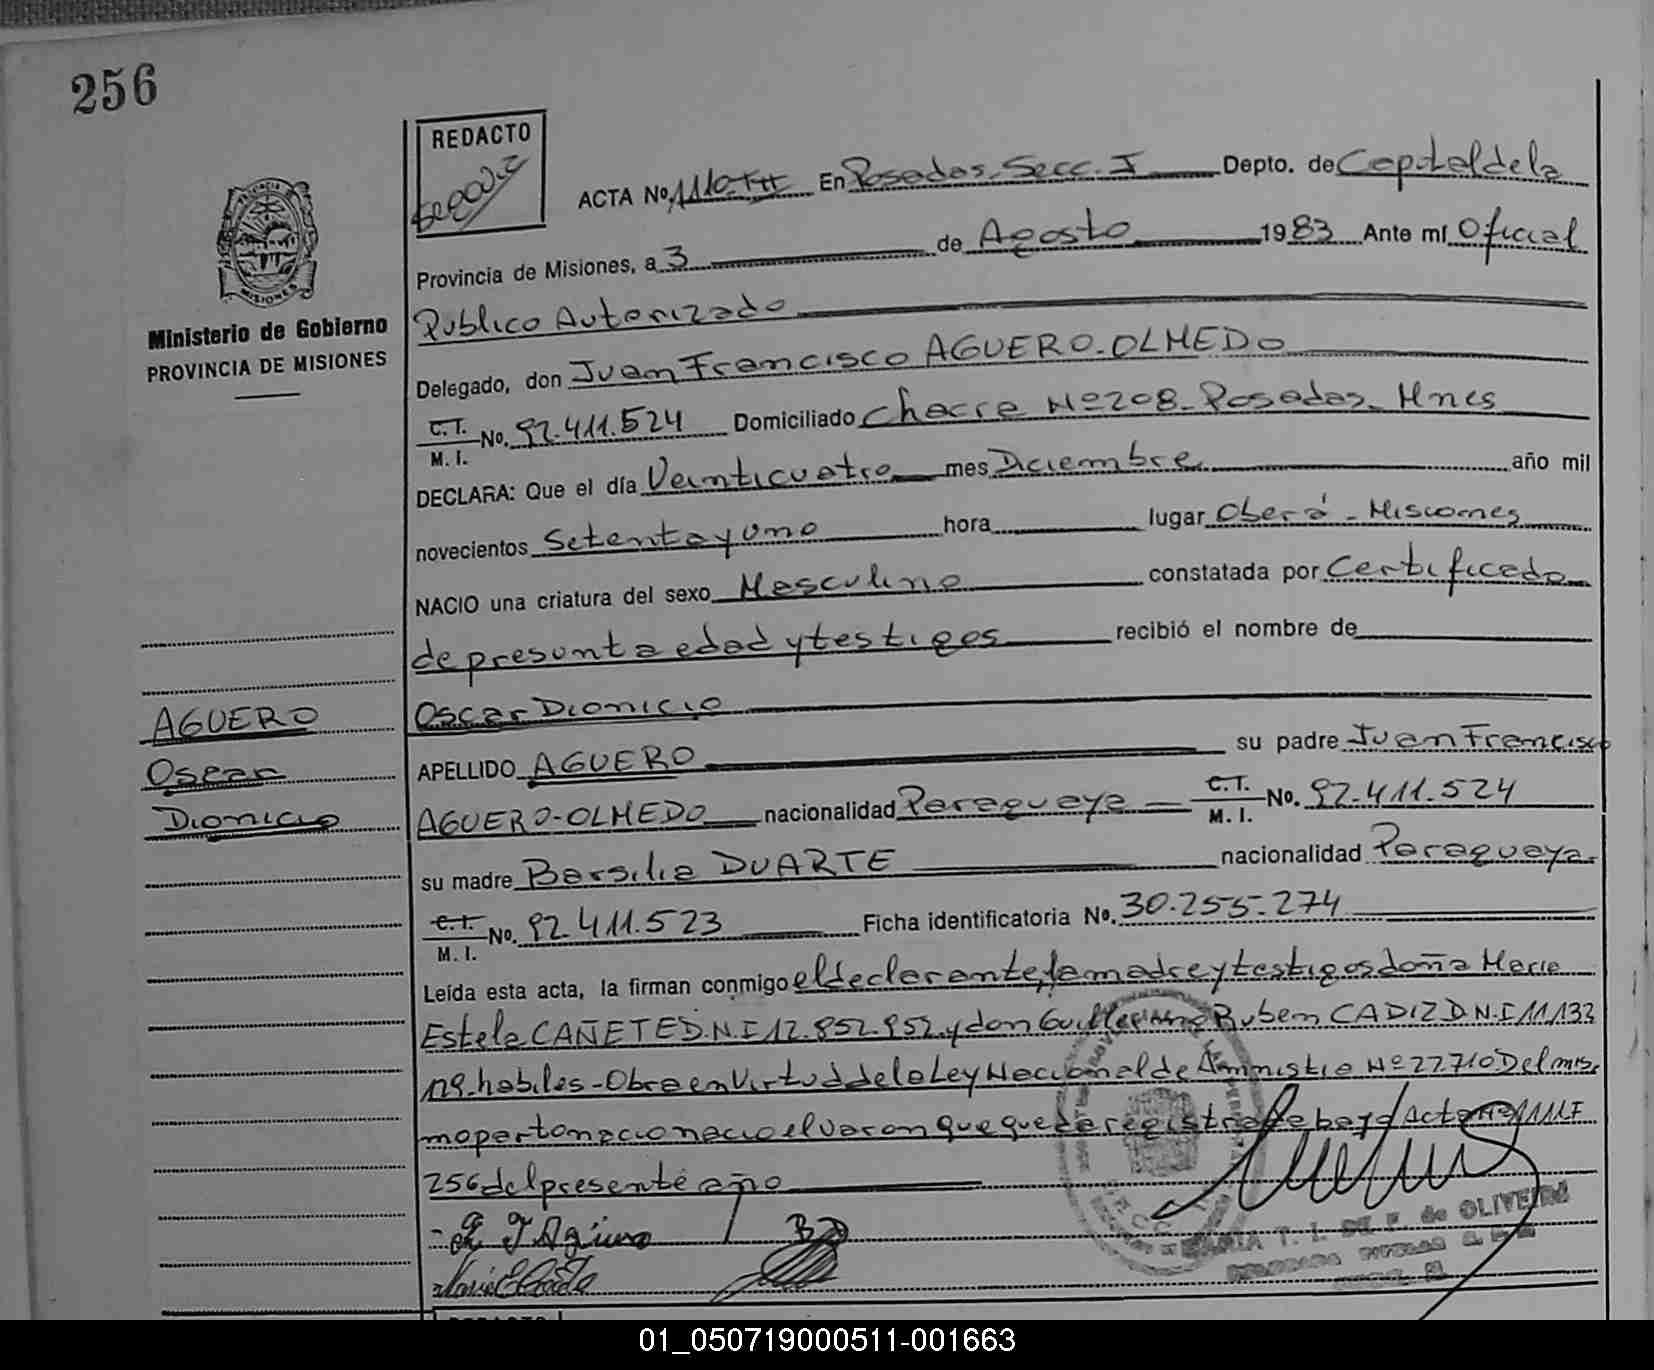 256
REDACTO
ACTA No. 1110-TII En Posadas-Secc. I Depto. de Capital de la
Provincia de Misiones, a 3 de Agosto 1983 Ante mí Oficial
Ministerio de Gobierno
PROVINCIA DE MISIONES
Publico Autorizado
Delegado, don Juan Francisco AGUERO-OLMEDO
C.T. M.I. No. 92.411.524 Domiciliado Chacra Nº 208-Posadas-Mnes
DECLARA: Que el día Veinticuatro mes Diciembre año mil
novecientos Setenta y uno hora lugar Oberá-Misiones
NACIO una criatura del sexo Masculino constatada por Certificado
de presunta edad y testigos recibió el nombre de
Oscar Dionicio
AGUERO
Oscar
Dionicio
APELLIDO AGUERO su padre Juan Francisco
AGUERO-OLMEDO nacionalidad Paraguaya C.T. M.I. No. 92.411.524
su madre Barsilia DUARTE nacionalidad Paraguaya
C.T. M.I. No. 92.411.523 Ficha identificatoria No. 30.255.274
Leída esta acta, la firman conmigo el declarante, la madre y testigos doña Maria
Estela CAÑETE D.N.I 12.852.952 y don Guillermo Ruben CADIZ D.N.I 11.133
129. habiles-Obra en Virtud de la Ley Nacional de Amnistia Nº 22.710 Del mis
mo parto nacio el varon que queda registrado bajo Acta Nº 1111 F
256 del presente año
MARIA T. I. DE F. de OLIVEIRA
01_050719000511-001663